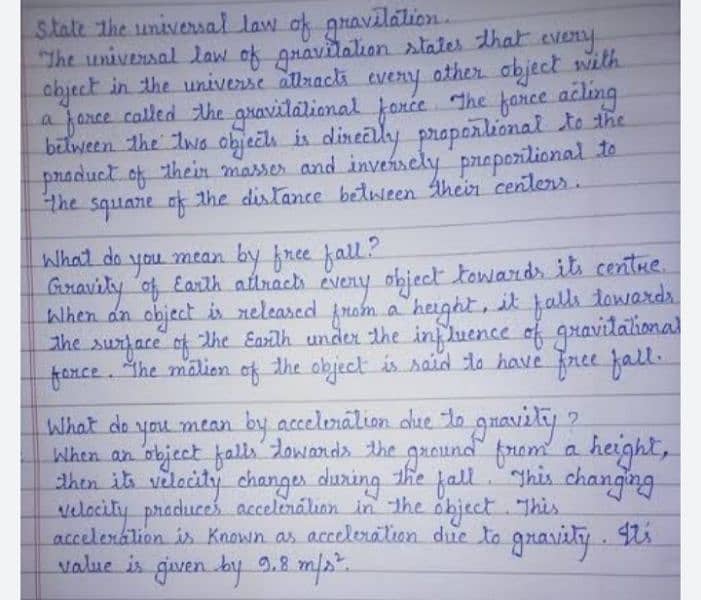 State the universal law of gravitation.
The universal law of gravitation states that every
object in the universe attracts every other object with
a force called the gravitational force. The force acting
between the two objects is directly proportional to the
product of their masses and inversely proportional to
the square of the distance between their centers.
What do you mean by free fall?
Gravity of Earth attracts every object towards its centre.
When an object is released from a height, it falls towards
the surface of the Earth under the influence of gravitational
force. The motion of the object is said to have free fall.
What do you mean by acceleration due to gravity?
When an object falls towards the ground from a height,
then its velocity changes during the fall. This changing
velocity produces acceleration in the object. This
acceleration is Known as acceleration due to gravity. Its
value is given by 9.8 m/s².